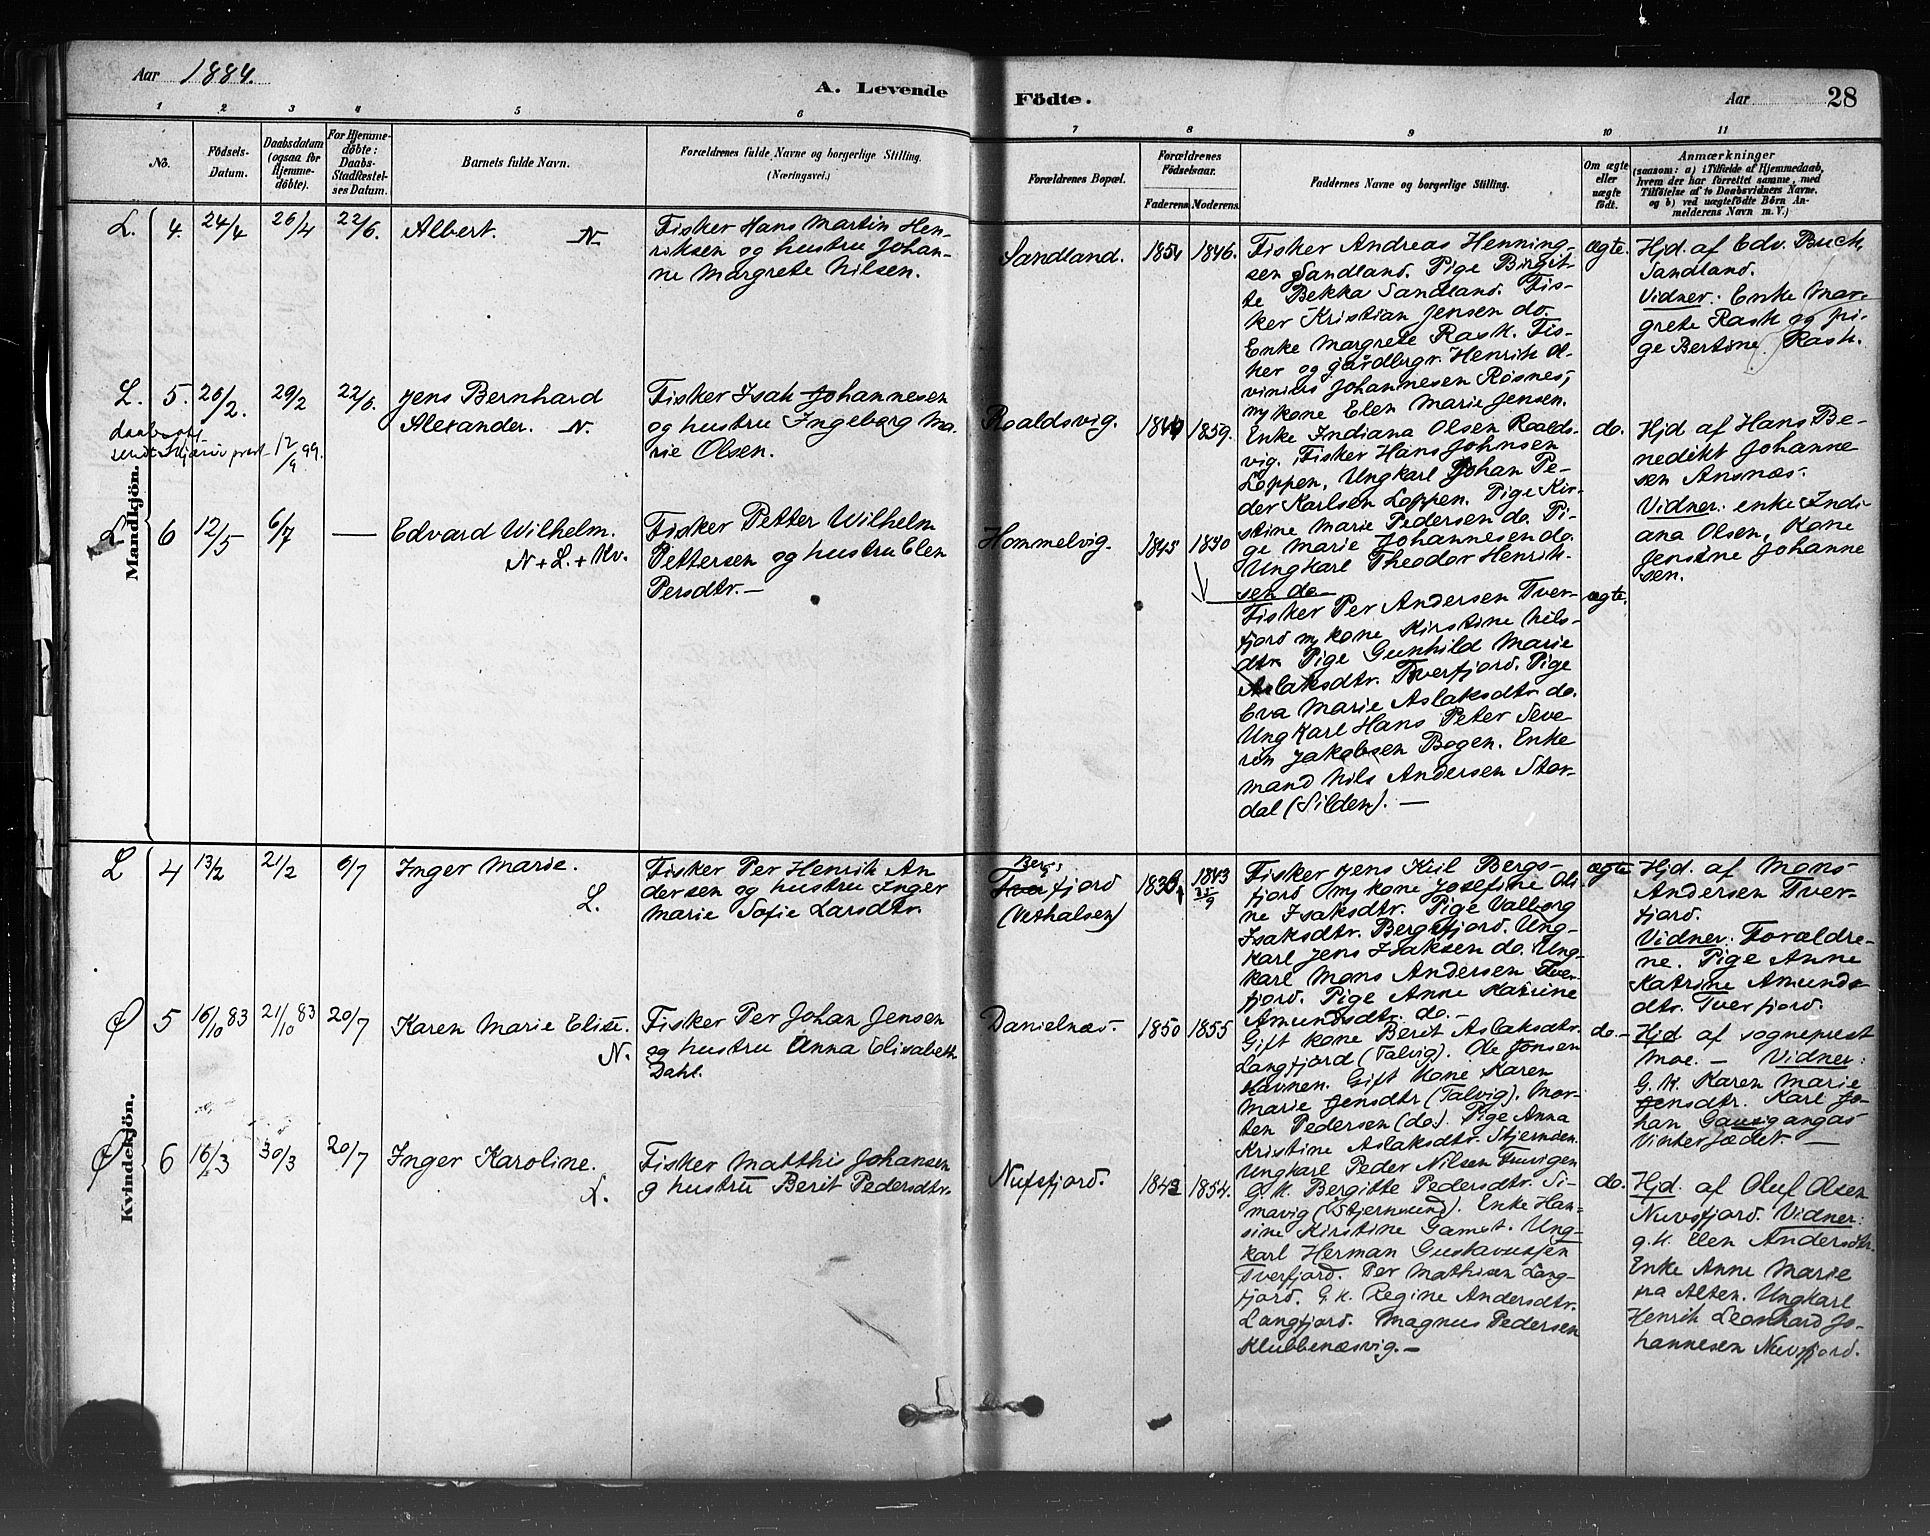 Aar 1884.
A. Levende Födte.
Aar 28
1 2 3 4 5 6 7 8 9 10 11
No.
Födsels-
Datum.
Daabsdatum
(ogsaa for
Hjemme-
døbte).
For Hjemme-
døbte:
Daabs-
Stadfæstel-
ses Datum.
Barnets fulde Navn.
Forældrenes fulde Navne og borgerlige Stilling.
(Næringsvei.)
Forældrenes Bopæl.
Forældrenes
Fødselsaar.
Faderens Moderens.
Faddernes Navne og borgerlige Stilling.
Om ægte
eller
uægte
født.
Anmærkninger
(saasom: a) i Tilfælde af Hjemmedaab,
hvem der har forrettet samme, med
Tilføielse af to Daabsvidners Navne,
og b) ved uægtefødte Børn An-
melderens Navn m. V.)
Mandkjön.
L. 4. 24/4 26/4 22/6. Albert. N.
Fisker Hans Martin Hen-
riksen og hustru Johan-
ne Margrete Nilsen.
Sandland. 1854 1846.
Fisker Andreas Henning-
sen Sandland. Pige Birgit-
te Bekka Sandland. Fis-
ker Kristian Jensen do.
Enke Margrete Rask. Fis-
ker og gårdbrgr. Henrik Ol-
vinius Johannesen Røsnes,
m/kone Elen Marie Jensen.
ægte.
Hjd. af Edv. Buck,
Sandland.
Vidner: Enke Mar-
grete Rask og pi-
ge Bertine Rask.
L. 5. 26/2. 29/2 22/6. Jens Bernhard
Alexander. N.
daabsatt.
12/9 99.
Fisker Isak Johannesen
og hustru Ingeborg Ma-
rie Olsen.
Roaldsvig. 1859.
Enke Indiana Olsen Roalds-
vig. Fisker Hans Johnsen
Loppen, Ungkarl Johan Pe-
der Karlsen Loppen. Pige Kir-
stine Marie Pedersen do. Pi-
ge Marie Johannesen do.
Ungkarl Theodor Henrik-
sen do.
do.
Hjd af Hans Be-
nedikt Johanne
sen Ansnæs.
Vidner: enke Indi
ana Olsen, Kone
Jensine Johanne
sen.
L 6 12/5 6/7 — Edvard Wilhelm.
N + L. + Kv.
Fisker Petter Wilhelm
Pettersen og hustru Elen
Persdtr. —
Hommelvig. 1845 1840
Fisker Per Andersen Tver-
fjord m/kone Kirstine Nils-
dtr. Pige Gunhild Marie
Aslaksdtr. Tverfjord. Pige
Eva Marie Aslaksdtr. do.
Ungkarl Hans Peter Seve
rin Jakobsen Bogen. Enke
mand Nils Andersen Stor-
dal (Silden). —
ægte.
Kvindekjön.
L 4 13/2 21/2 6/7 Inger Marie.
L.
Fisker Per Henrik An
dersen og hustru Inger
Marie Sofie Larsdtr.
Bergs
fjord
1843
Fisker Jens Kiil Bergs-
fjord m/kone Josefine Oli
ne Isaksdtr. Pige Valborg
Isaksdtr. Bergsfjord. Ung-
karl Jens Isaksen do. Ung
karl Mons Andersen Tver-
fjord. Pige Anne Katrine
Amundsdtr. do. —
ægte
Hjd. af Mons
Andersen Tver-
fjord.
Vidner: Forældre-
ne. Pige Anne
Katrine Amunds
dtr. Tverfjord.
Ø 5 16/10 83 21/10 83 20/7 Karen Marie Elise.
N.
Fisker Per Johan Jensen
og hustru Anna Elisabeth
Dahl.
Danielnæs. 1850 1855
Gift kone Berit Aslaksdtr.
Langfjord (Talvig). Ole Jonsen
Havnen. Gift kone Karen
Marie Jensdtr (Talvig). Mor-
ten Pedersen (do). Pige Anna
Kristine Aslaksdtr. Stjernøen.
Ungkarl Peder Nilsen
do. —
Hjd af sogneprest
Moe. — Vidner:
G. K. Karen Marie
Jensdtr. Karl Jo-
han
Vinterfædet. —
Ø 6 16/3 30/3 20/7 Inger Karoline.
L.
Fisker Matthis Johansen
g hustru Berit Pedersdtr.
Nufsfjord. 1843 1854.
G. K. Bergitte Pedersdtr. Si-
mavig (Stjernsund). Enke Han-
sine Kirstine Gamst. Ung-
karl Herman Gustavussen
Tverfjord. Per Mathisen Lang-
fjord. G. K. Regine Andersdtr.
Langfjord. Magnus Pedersen
Klubbenæsvig. —
do.
Hjd. af Oluf Olsen
Nuvsfjord. Vidner:
g. K. Elen Andersdtr.
Enke Anne Marie
fra Alten. Ungkarl
Henrik Leonhard Jo-
hannesen Nuvsfjord.